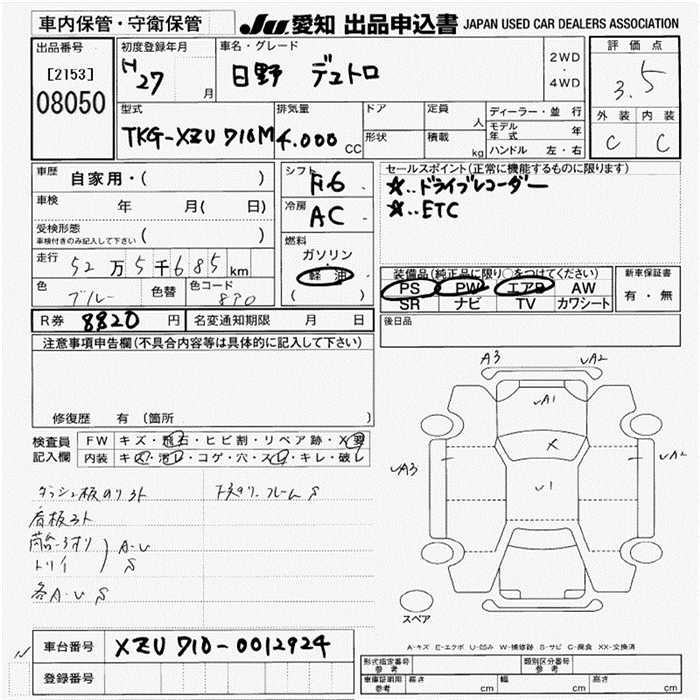 車内保管・守衛保管
JU 愛知 出品申込書 JAPAN USED CAR DEALERS ASSOCIATION
出品番号
[2153]
08050
初度登録年月
H27 月
車名・グレード
日野 デュトロ
2WD
・
4WD
評価点
3.5
外装 内装
C C
型式
TKG-XZU710M
排気量
4.000 CC
ドア
形状
定員 人
積載 kg
ディーラー・並行
モデル年式 年
ハンドル 左・右
車歴 自家用・( )
車検 年 月( 日)
受検形態
車検付きのみ記入して下さい ( )
走行 52万5千685km
色 ブルー 色替 色コード 890
シフト F6
冷房 AC
燃料
ガソリン
・
軽油
( )
セールスポイント(正常に機能するものに限ります)
☆..ドライブレコーダー
☆..ETC
装備品(純正品に限り○をつけてください)
PS PW エアB AW
SR ナビ TV カワシート
新車保証書
有・無
R券 8820 円 名変通知期限 月 日
後日品
注意事項申告欄(不具合内容等は具体的に記入して下さい)
修復歴 有(箇所 )
検査員記入欄
FW キズ・飛石・ヒビ割・リペア跡・X要
内装 キズ・汚レ・コゲ・穴・スレ・キレ・破レ
S
看板コト
A-U
S
各A-U S
A3 UA2
UA1
X
U1
UA3 UA2
スペア
A-キズ E-エクボ U-凹み W-補修跡 S-サビ C-腐食 XX-交換済
車台番号 XZU710-0012924
登録番号
型式指定番号 参考
類別区分番号 参考
車庫証明用 参考 長さ cm 幅 cm 高さ cm